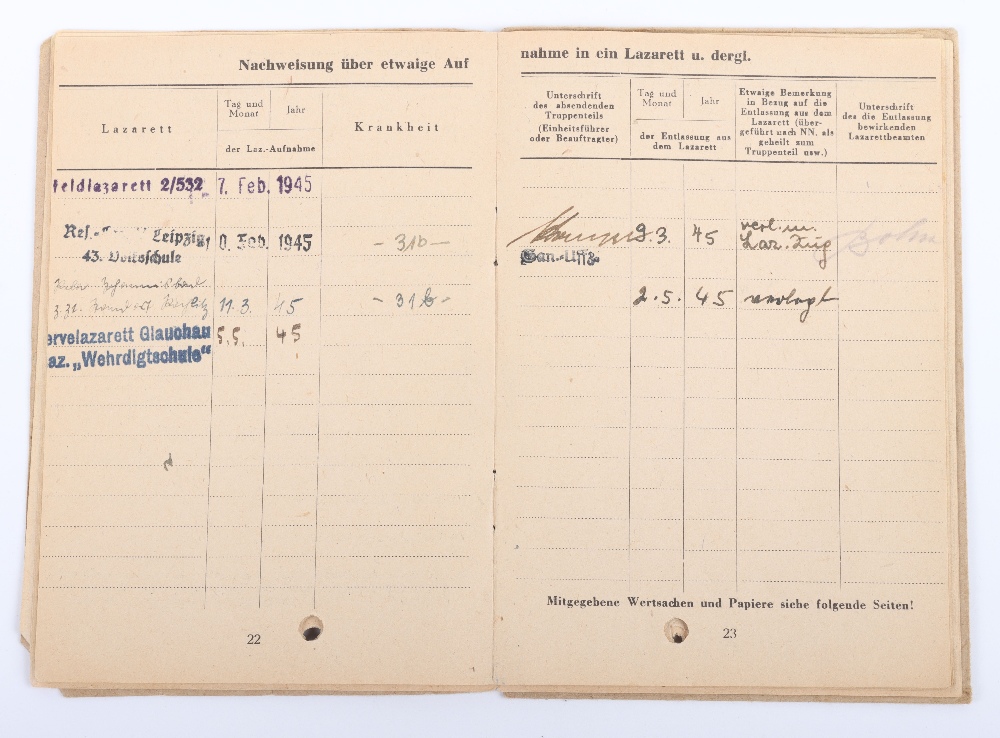 Nachweisung über etwaige Auf
Lazarett
Tag und
Monat
Jahr
der Laz.-Aufnahme
Krankheit
feldlazarett 2/532 7. Feb. 1945
Leipzig
Feb. 1945
- 31b -
43. Volksschule
11.3. 45 - 31b -
ervelazarett Glauchau 5.5. 45
az. „Wehrdigtschule“
22
nahme in ein Lazarett u. dergl.
Unterschrift
des absendenden
Truppenteils
(Einheitsführer
oder Beauftragter)
Tag und
Monat
Jahr
der Entlassung aus
dem Lazarett
Etwaige Bemerkung
in Bezug auf die
Entlassung aus dem
Lazarett (über-
geführt nach NN. als
geheilt zum
Truppenteil usw.)
Unterschrift
des die Entlassung
bewirkenden
Lazarettbeamten
3. 45 verl. m.
Laz. Zug
San.-Uffz.
2.5. 45 verlegt
Mitgegebene Wertsachen und Papiere siehe folgende Seiten!
23